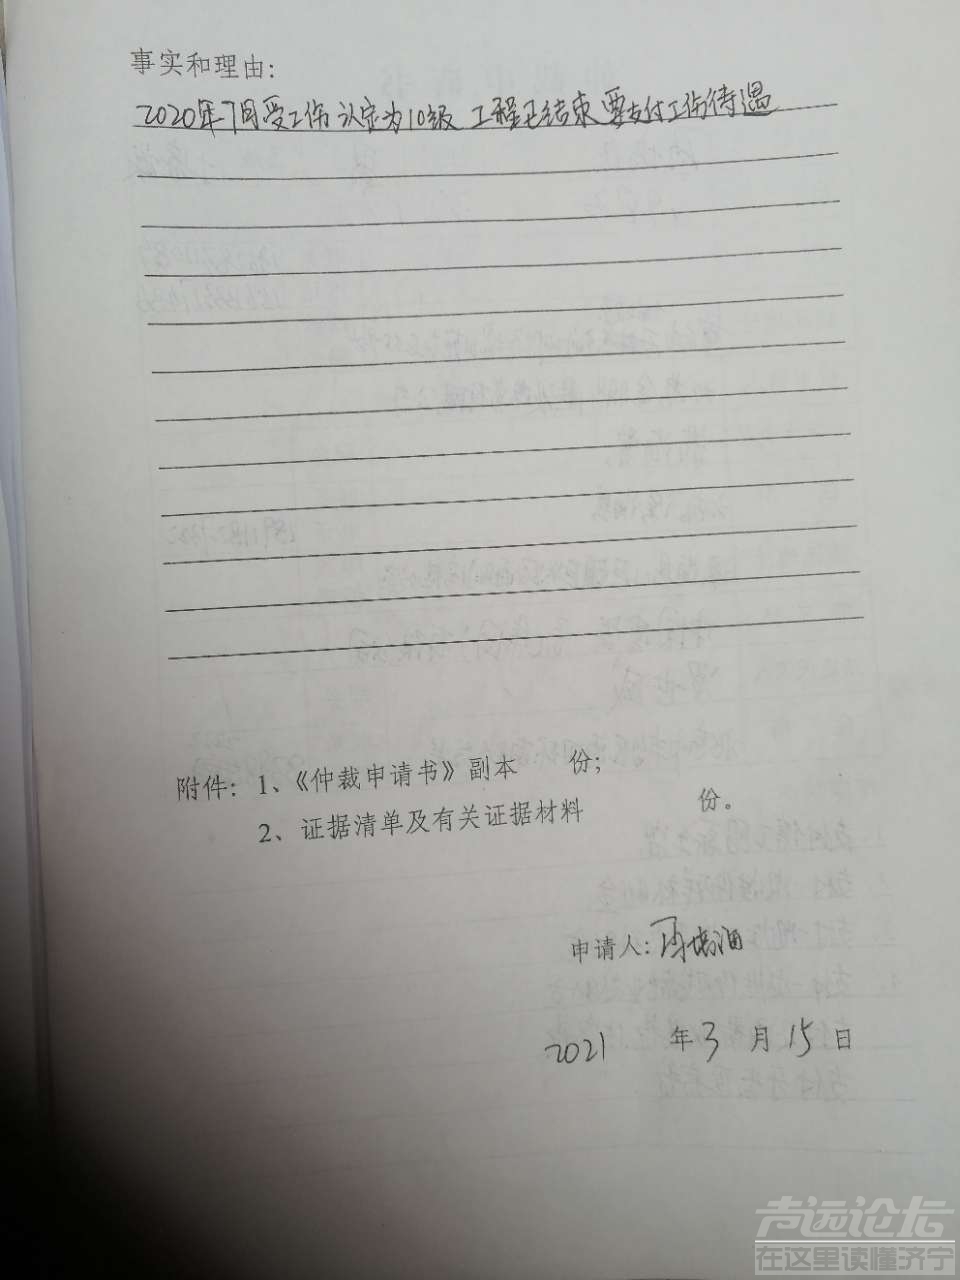 事实和理由：
2020年7月受工伤 认定为10级 工程已结束 要支付工伤待遇
附件：1、《仲裁申请书》副本 份；
2、证据清单及有关证据材料 份。
申请人：
2021 年3月15日
声远论坛
在这里读懂济宁